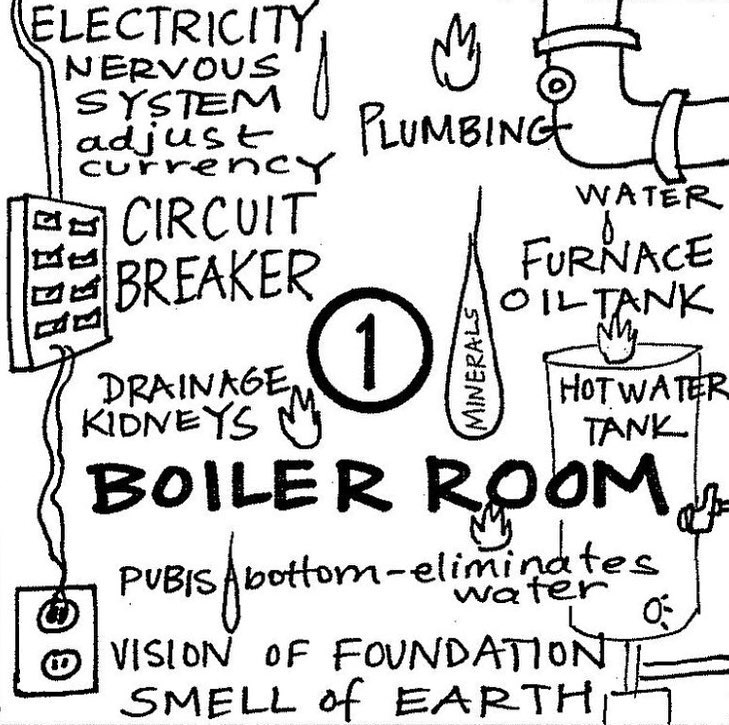 ELECTRICITY
NERVOUS
SYSTEM
adjust
currency
PLUMBING
WATER
CIRCUIT
BREAKER
FURNACE
OIL TANK
1
MINERALS
DRAINAGE
KIDNEYS
HOT WATER
TANK
BOILER ROOM
PUBIS bottom-eliminates
water
VISION OF FOUNDATION
SMELL of EARTH